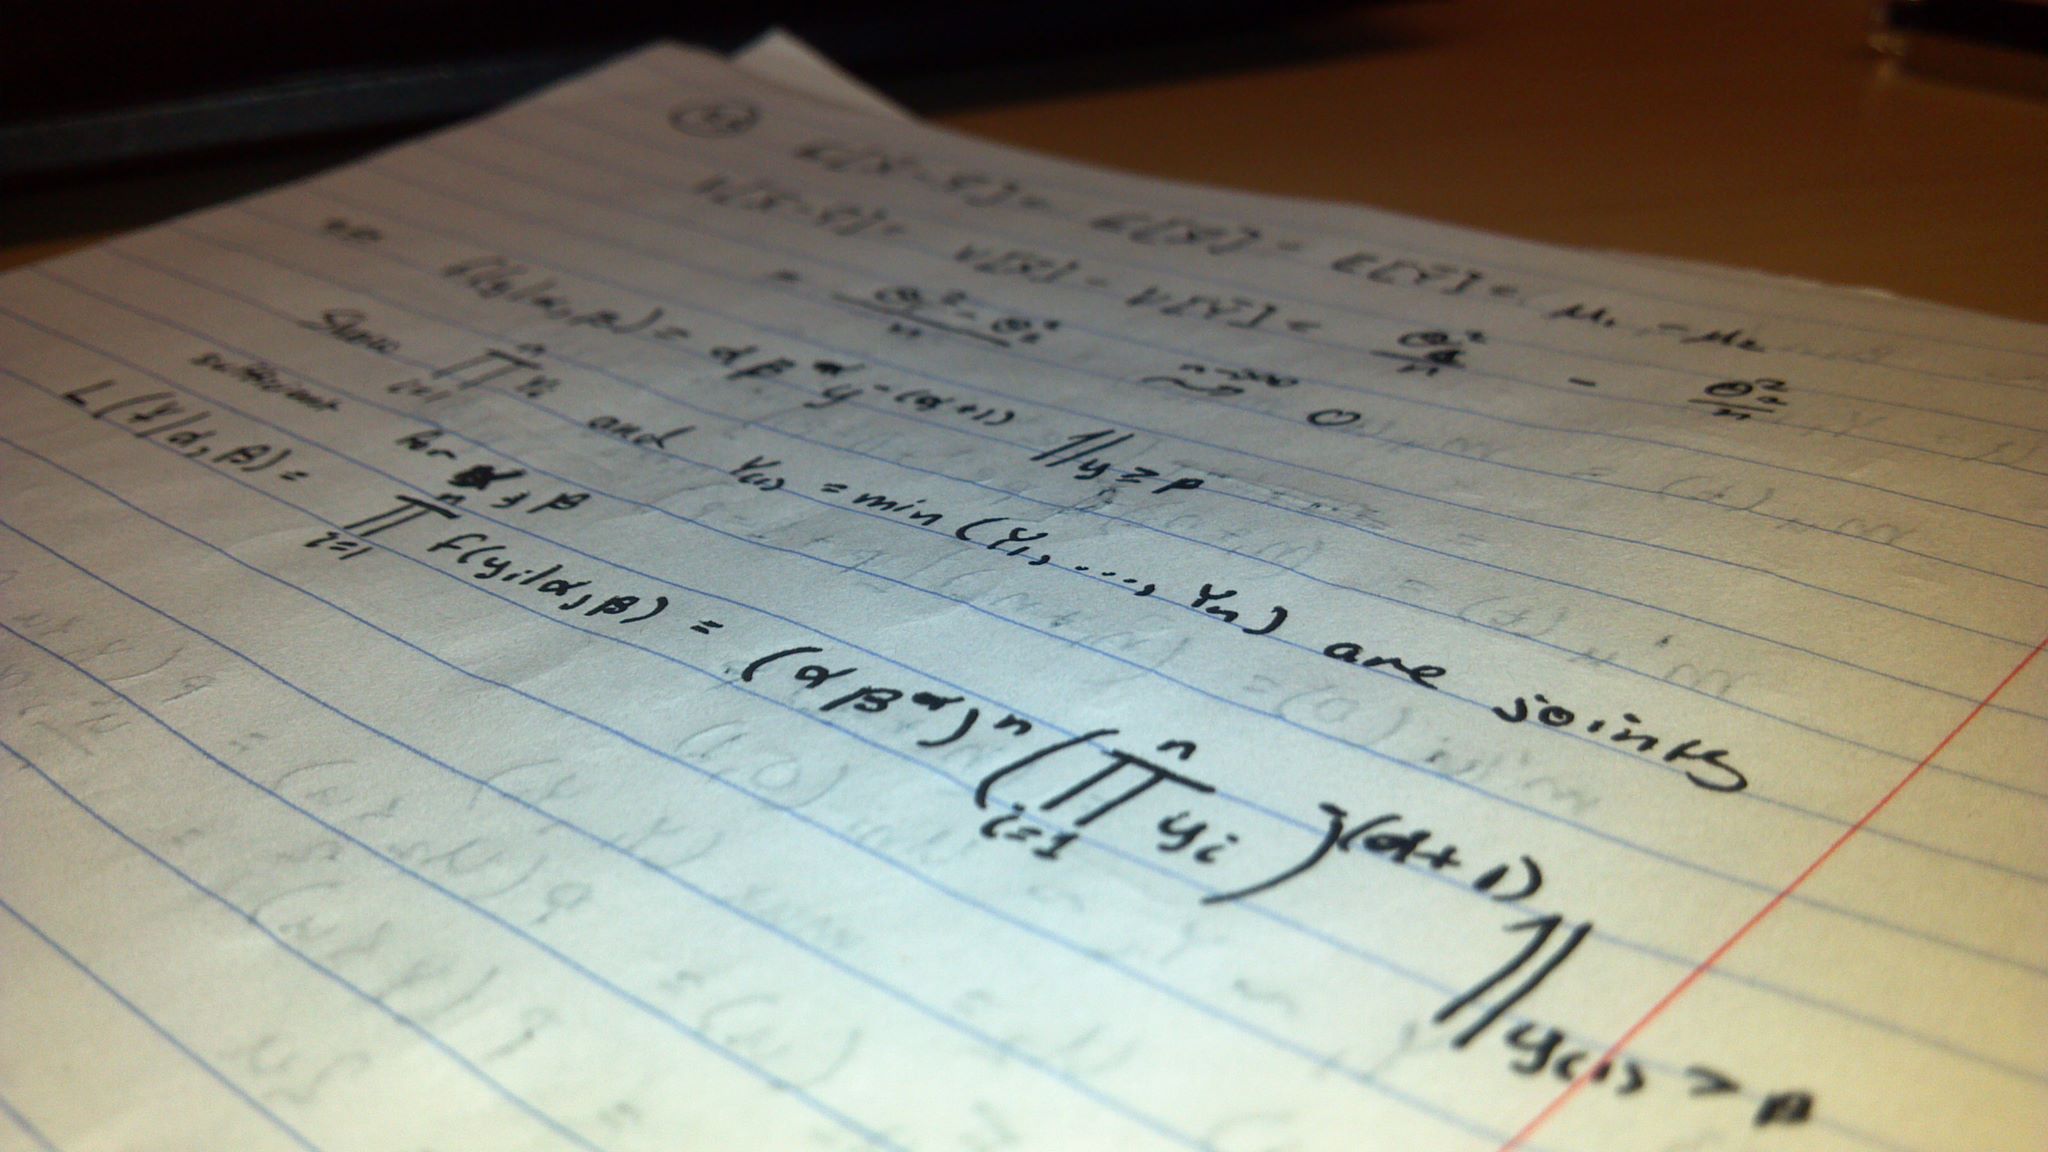 E[X̄-Ȳ] = E[X̄] - E[Ȳ] = μ₁ - μ₂
V[X̄-Ȳ] = V[X̄] - V[Ȳ] = σ₁²/n - σ₂²/n
= (σ₁² - σ₂²)/n n→∞ 0
f(y|α,β) = αβ^α y^-(α+1) 𝟙 y≥β
Show ∏ᵢ₌₁ⁿ Yᵢ and Y₍₁₎ = min(Y₁, ..., Yₙ) are jointly
sufficient for α, β
L(Y|α,β) = ∏ᵢ₌₁ⁿ f(yᵢ|α,β) = (αβ^α)ⁿ (∏ᵢ₌₁ⁿ yᵢ)^-(α+1) 𝟙 y₍₁₎ > β